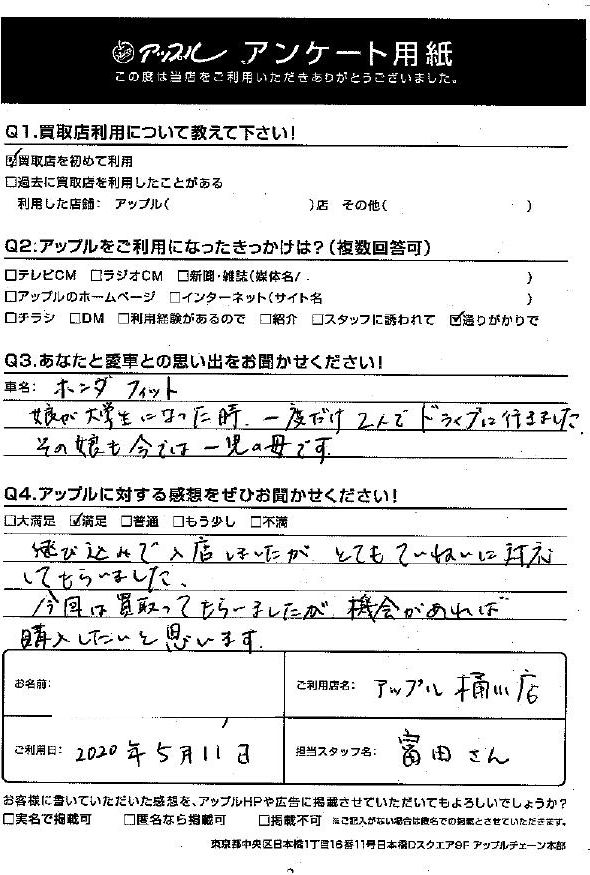 アップル アンケート用紙
この度は当店をご利用いただきありがとうございました。
Q1.買取店利用について教えて下さい!
☑買取店を初めて利用
□過去に買取店を利用したことがある
利用した店舗: アップル( )店 その他( )
Q2:アップルをご利用になったきっかけは?(複数回答可)
□テレビCM □ラジオCM □新聞・雑誌(媒体名/ )
□アップルのホームページ □インターネット(サイト名 )
□チラシ □DM □利用経験があるので □紹介 □スタッフに誘われて ☑通りがかりで
Q3.あなたと愛車との思い出をお聞かせください!
車名: ホンダ フィット
娘が大学生になった時、一度だけ2人でドライブに行きました。
その娘も今では一児の母です。
Q4.アップルに対する感想をぜひお聞かせください!
□大満足 ☑満足 □普通 □もう少し □不満
飛び込みで入店しましたが とてもていねいに対応
してもらいました。
今回は買取ってもらいましたが、機会があれば
購入したいと思います。
お名前: ご利用店名: アップル 桶川店
ご利用日: 2020年5月11日 担当スタッフ名: 富田さん
お客様に書いていただいた感想を、アップルHPや広告に掲載させていただいてもよろしいでしょうか?
□実名で掲載可 □匿名なら掲載可 □掲載不可 ※ご記入がない場合は匿名での掲載とさせていただきます。
東京都中央区日本橋1丁目16番11号日本橋Dスクエア9F アップルチェーン本部